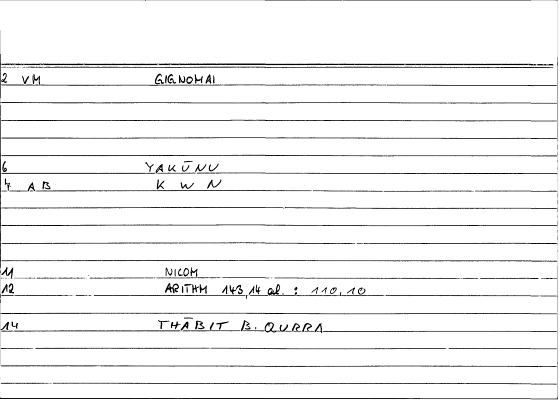 2 VM GIGNOMAI
6 YAKŪNU
4 AB K W N
11 NICOM
12 ARITHM 143,14 al. : 110,10
14 THĀBIT B. QURRA